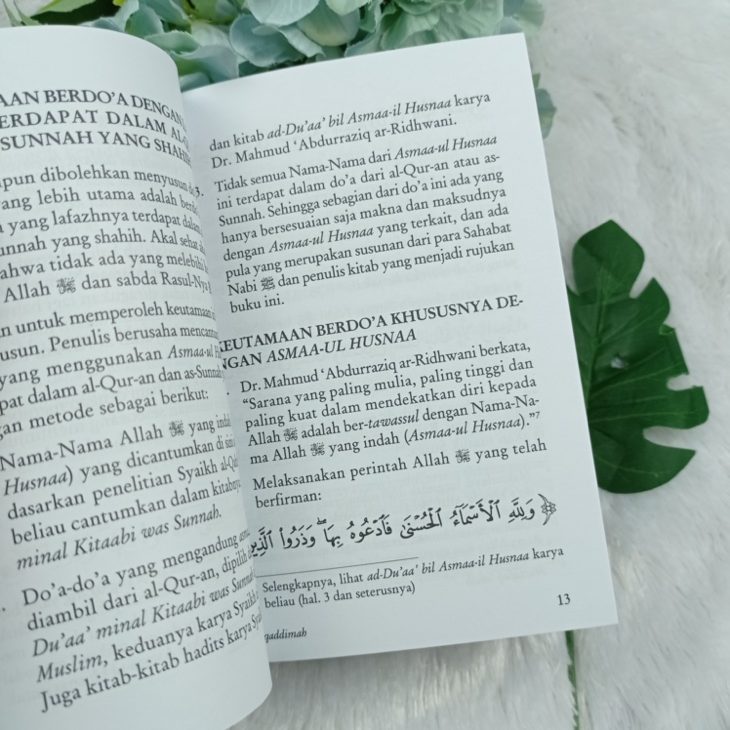 AAN BERDO'A DENGAN
ERDAPAT DALAM AL-
SUNNAH YANG SHAHIH
pun dibolehkan menyusun
yang lebih utama adalah
yang lafazhnya terdapat dalam
unnah yang shahih. Akal sehat
ahwa tidak ada yang melebihi
Allah ﷺ dan sabda Rasul-Nya
an untuk memperoleh keutamaan
usun. Penulis berusaha
yang menggunakan Asmaa-ul
pat dalam al-Qur-an dan as-Sunnah
gan metode sebagai berikut:
Nama-Nama Allah ﷻ yang indah
Husnaa) yang dicantumkan di
dasarkan penelitian Syaikh
beliau cantumkan dalam kitabnya
minal Kitaabi was Sunnah.
Do'a-do'a yang mengandung
diambil dari al-Qur-an, dipilih
Du'aa' minal Kitaabi was Sunnah
Muslim, keduanya karya Syaikh
Juga kitab-kitab hadits karya
3.
dan kitab ad-Du'aa' bil Asmaa-il Husnaa karya
Dr. Mahmud 'Abdurraziq ar-Ridhwani.
Tidak semua Nama-Nama dari Asmaa-ul Husnaa
ini terdapat dalam do'a dari al-Qur-an atau as-
Sunnah. Sehingga sebagian dari do'a ini ada yang
hanya bersesuaian saja makna dan maksudnya
dengan Asmaa-ul Husnaa yang terkait, dan ada
pula yang merupakan susunan dari para Sahabat
Nabi ﷺ dan penulis kitab yang menjadi rujukan
buku ini.
KEUTAMAAN BERDO'A KHUSUSNYA DE-
NGAN ASMAA-UL HUSNAA
Dr. Mahmud 'Abdurraziq ar-Ridhwani berkata,
"Sarana yang paling mulia, paling tinggi dan
paling kuat dalam mendekatkan diri kepada
Allah ﷻ adalah ber-tawassul dengan Nama-Na-
ma Allah ﷻ yang indah (Asmaa-ul Husnaa)."7
Melaksanakan perintah Allah ﷻ yang telah
berfirman:
وَلِلَّهِ ٱلْأَسْمَآءُ ٱلْحُسْنَىٰ فَٱدْعُوهُ بِهَا ۖ وَذَرُوا۟ ٱلَّذِينَ
Selengkapnya, lihat ad-Du'aa' bil Asmaa-il Husnaa karya
beliau (hal. 3 dan seterusnya)
qaddimah
13